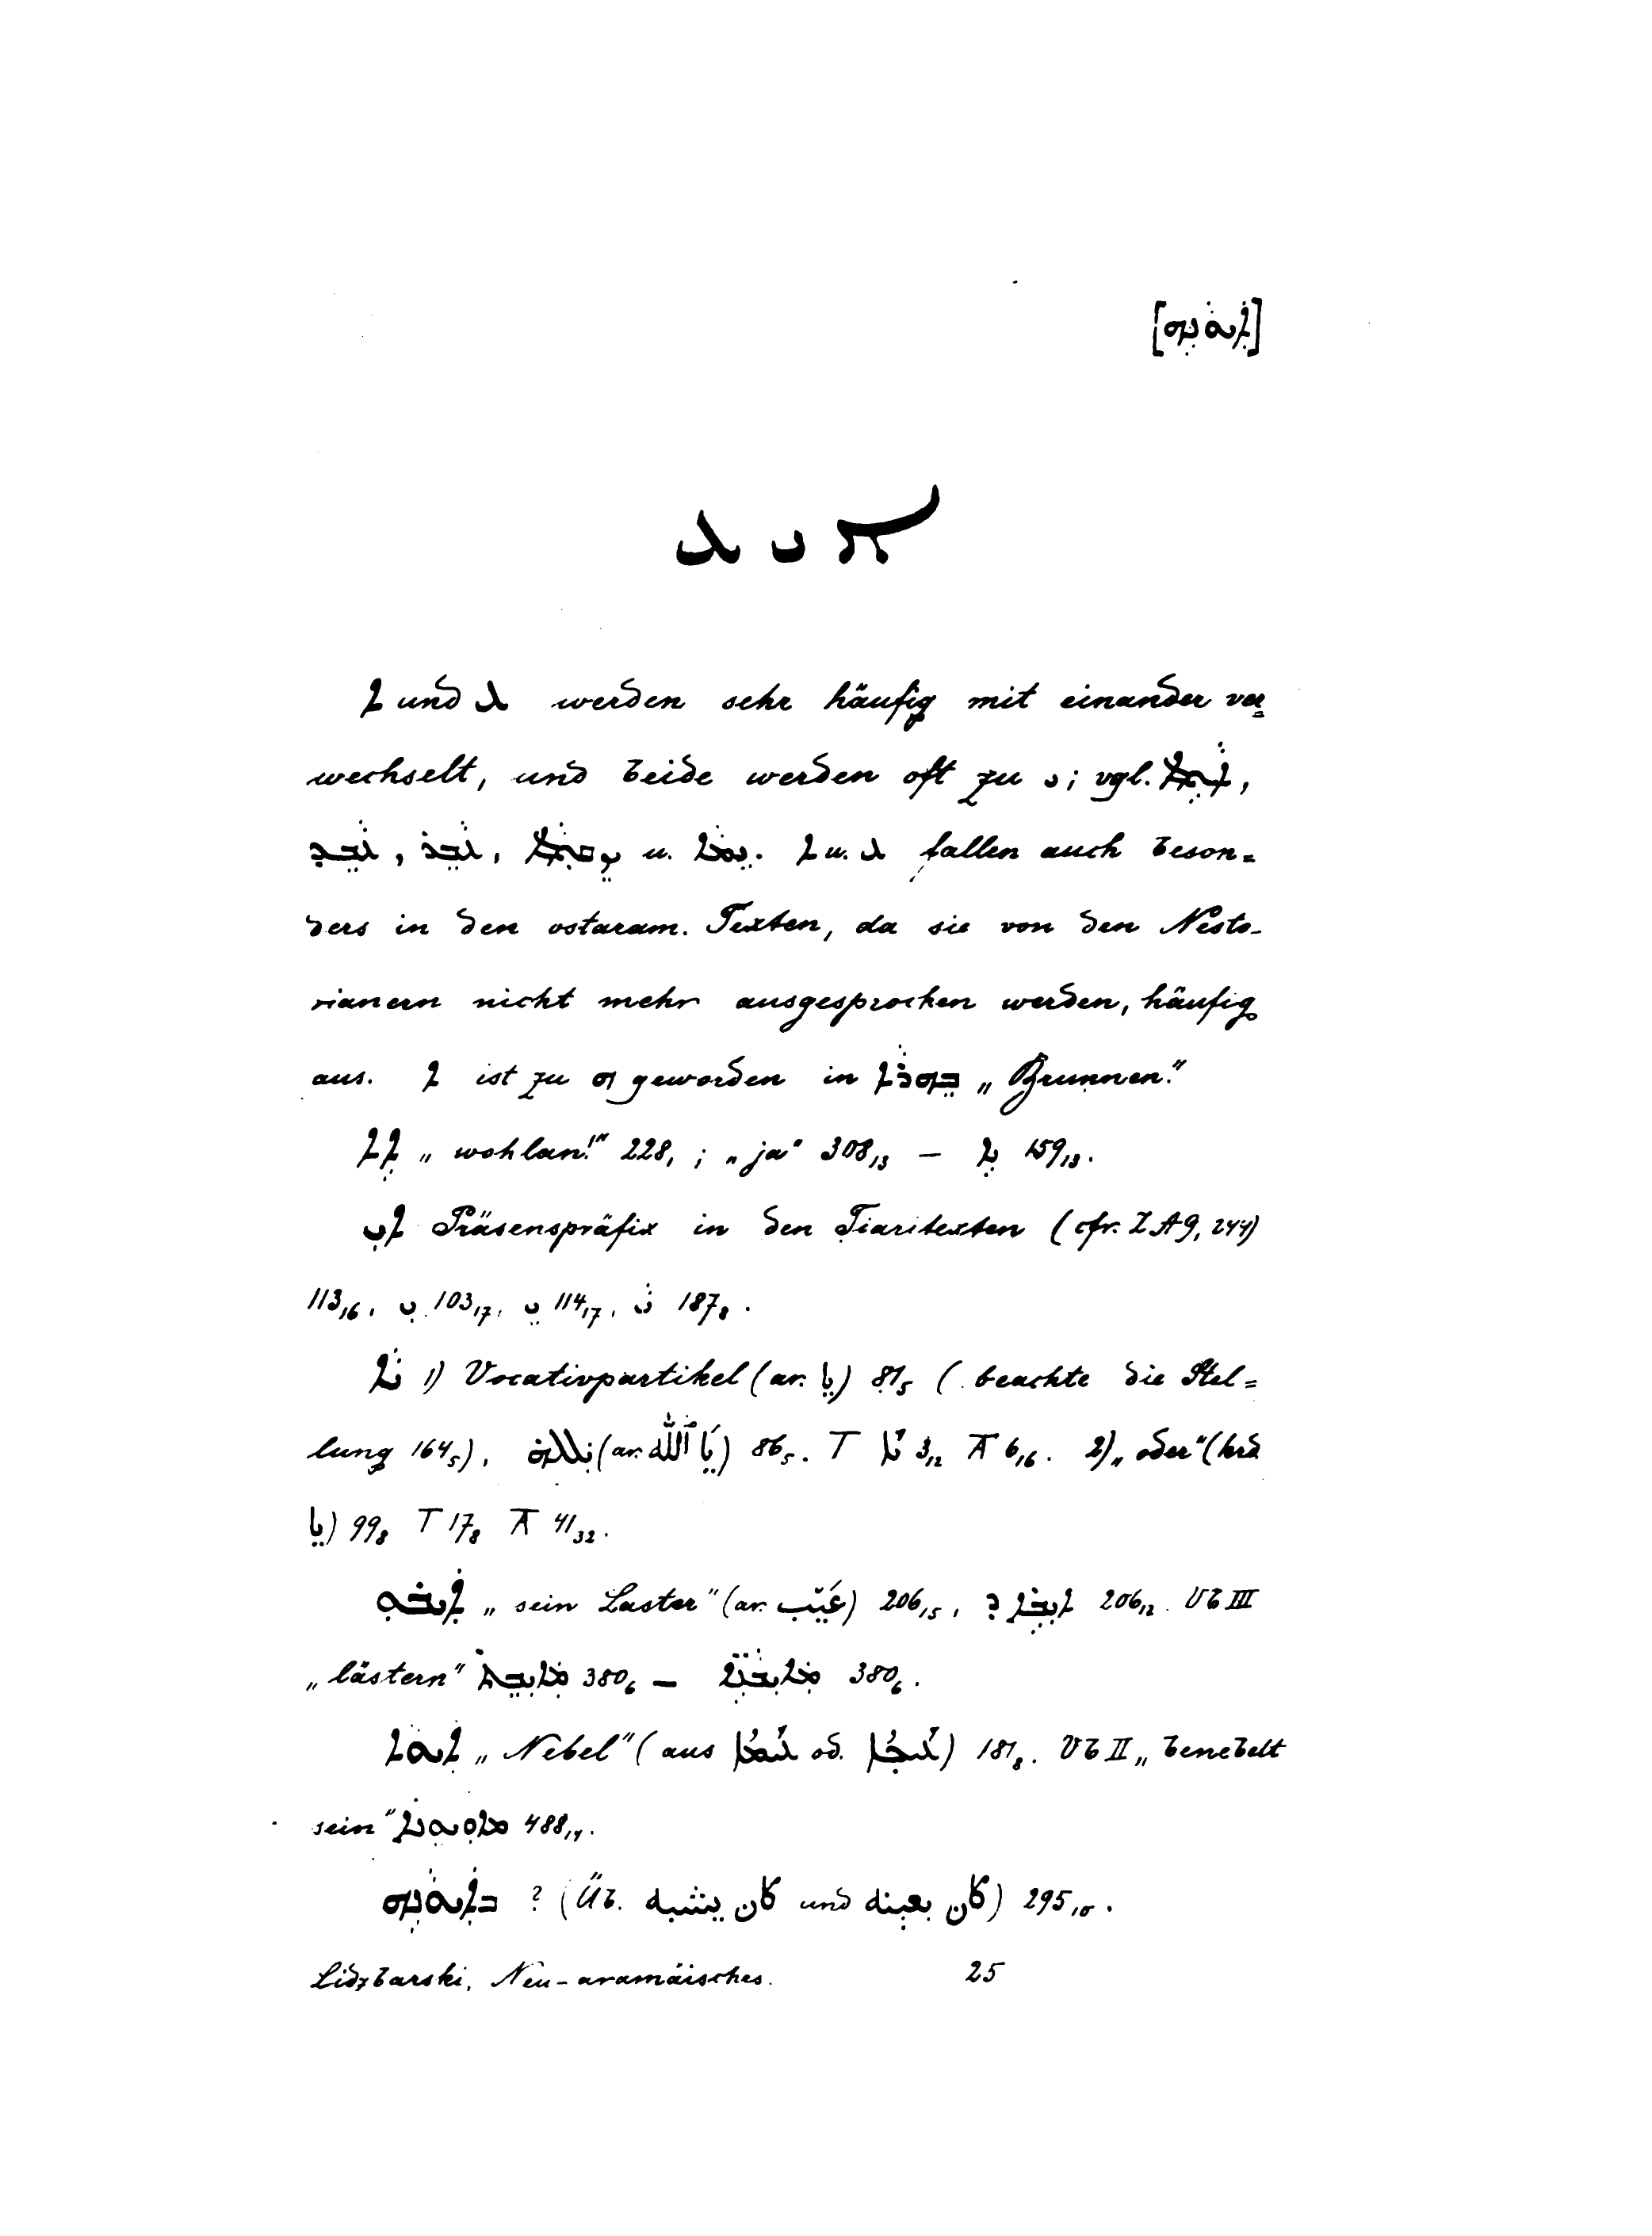 ܐ ܝ ܥ
ܐ und ܥ werden sehr häufig mit einander ver=
wechselt, und beide werden oft zu ܝ; vgl.
u. ܐ u. ܥ fallen auch beson=
ders in den ostaram. Texten, da sie von den Nesto-
rianern nicht mehr ausgesprochen werden, häufig
aus. ܐ ist zu ܗ geworden in ܒܹܗܪܵܐ „Brunnen."
ܐܹܐ „wohlan!" 228₁; „ja" 308₁₃ — ܝܹܐ 159₁₃.
ܐܝ Präsenspräfix in den Tiaritexten (cfr. ZA 9, 244)
113₁₆, ܝ 103₁₇, ܝ 114₁₇, ܝ 187₈.
ܝܵܐ 1) Vocativpartikel (ar. يا) 81₅ (beachte die Stel=
lung 164₅), (ar. يَا ٱللّٰه) 86₅. T ܝܐ 3₁₂ A 6₁₆. 2) „oder" (krd
يا) 99₈ T 17₈ A 41₃₂.
„sein Laster" (ar. عَيْب) 206₁₅, ? 206₁₂. Vb III
„lästern" 380₆ — 380₆.
ܐܝܘܐ „Nebel" (aus od. ) 181₈. Vb II „benebelt
sein" 488₁₄.
? (Üb. كان يشبه und كان بعينه) 295₁₀.
Lidzbarski, Neu-aramäisches. 25